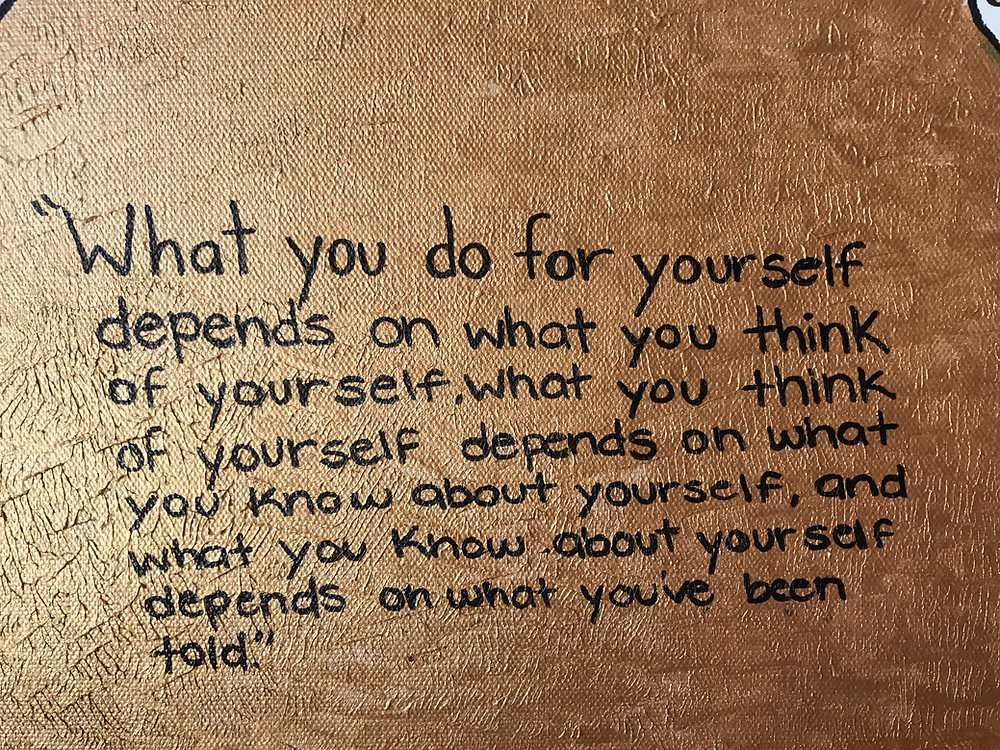 "What you do for yourself
depends on what you think
of yourself. What you think
of yourself depends on what
you know about yourself, and
what you know about yourself
depends on what you've been
told."